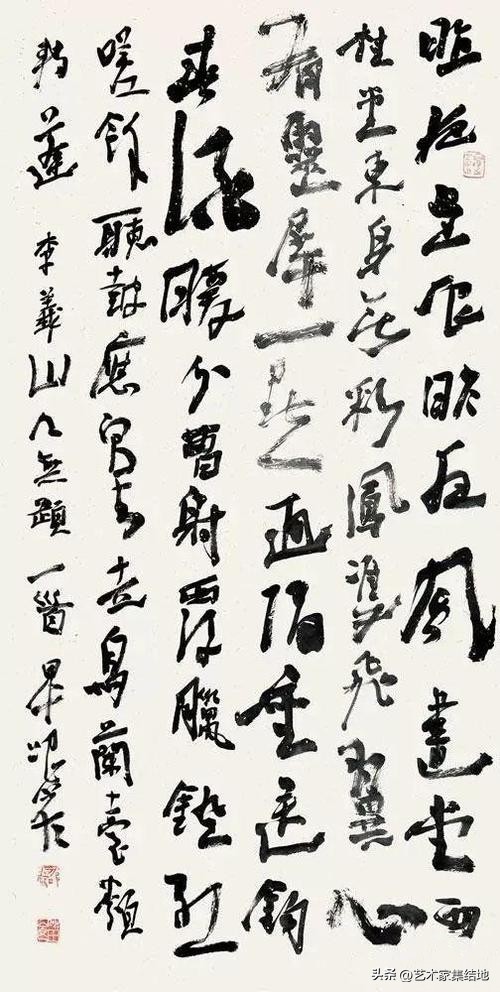 昨夜星辰昨夜風畫堂西
桂堂東身無彩鳳雙飛翼心
有靈犀一點通隔座送鈎
春酒暖分曹射覆臘鐙紅
嗟餘聽鼓應官去走馬蘭臺類
轉蓬 李義山 無題一首
头条 @艺术家集结地